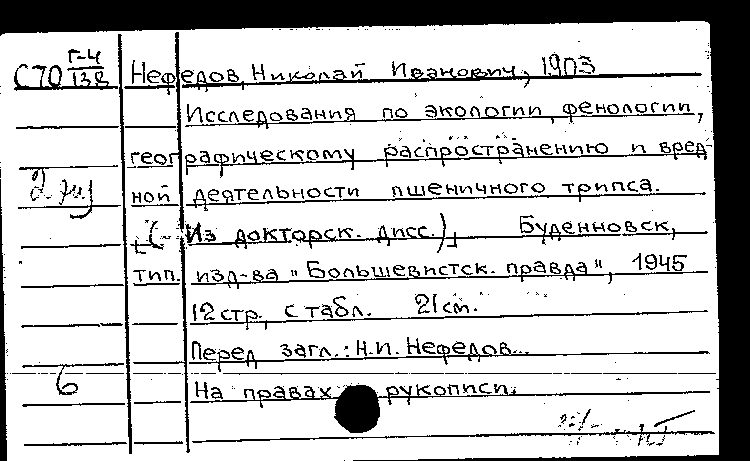 С70 Г-4/138 Нефедов, Николай Иванович, 1903
Исследования по экологии, фенологии,
географическому распространению и вред-
2 экз ной деятельности пшеничного трипса.
(Из докторск. дисс.) Буденновск,
тип. изд-ва "Большевистск. правда", 1945
12 стр., с табл. 21 см.
Перед загл.: Н.И. Нефедов...
6 На правах рукописи.